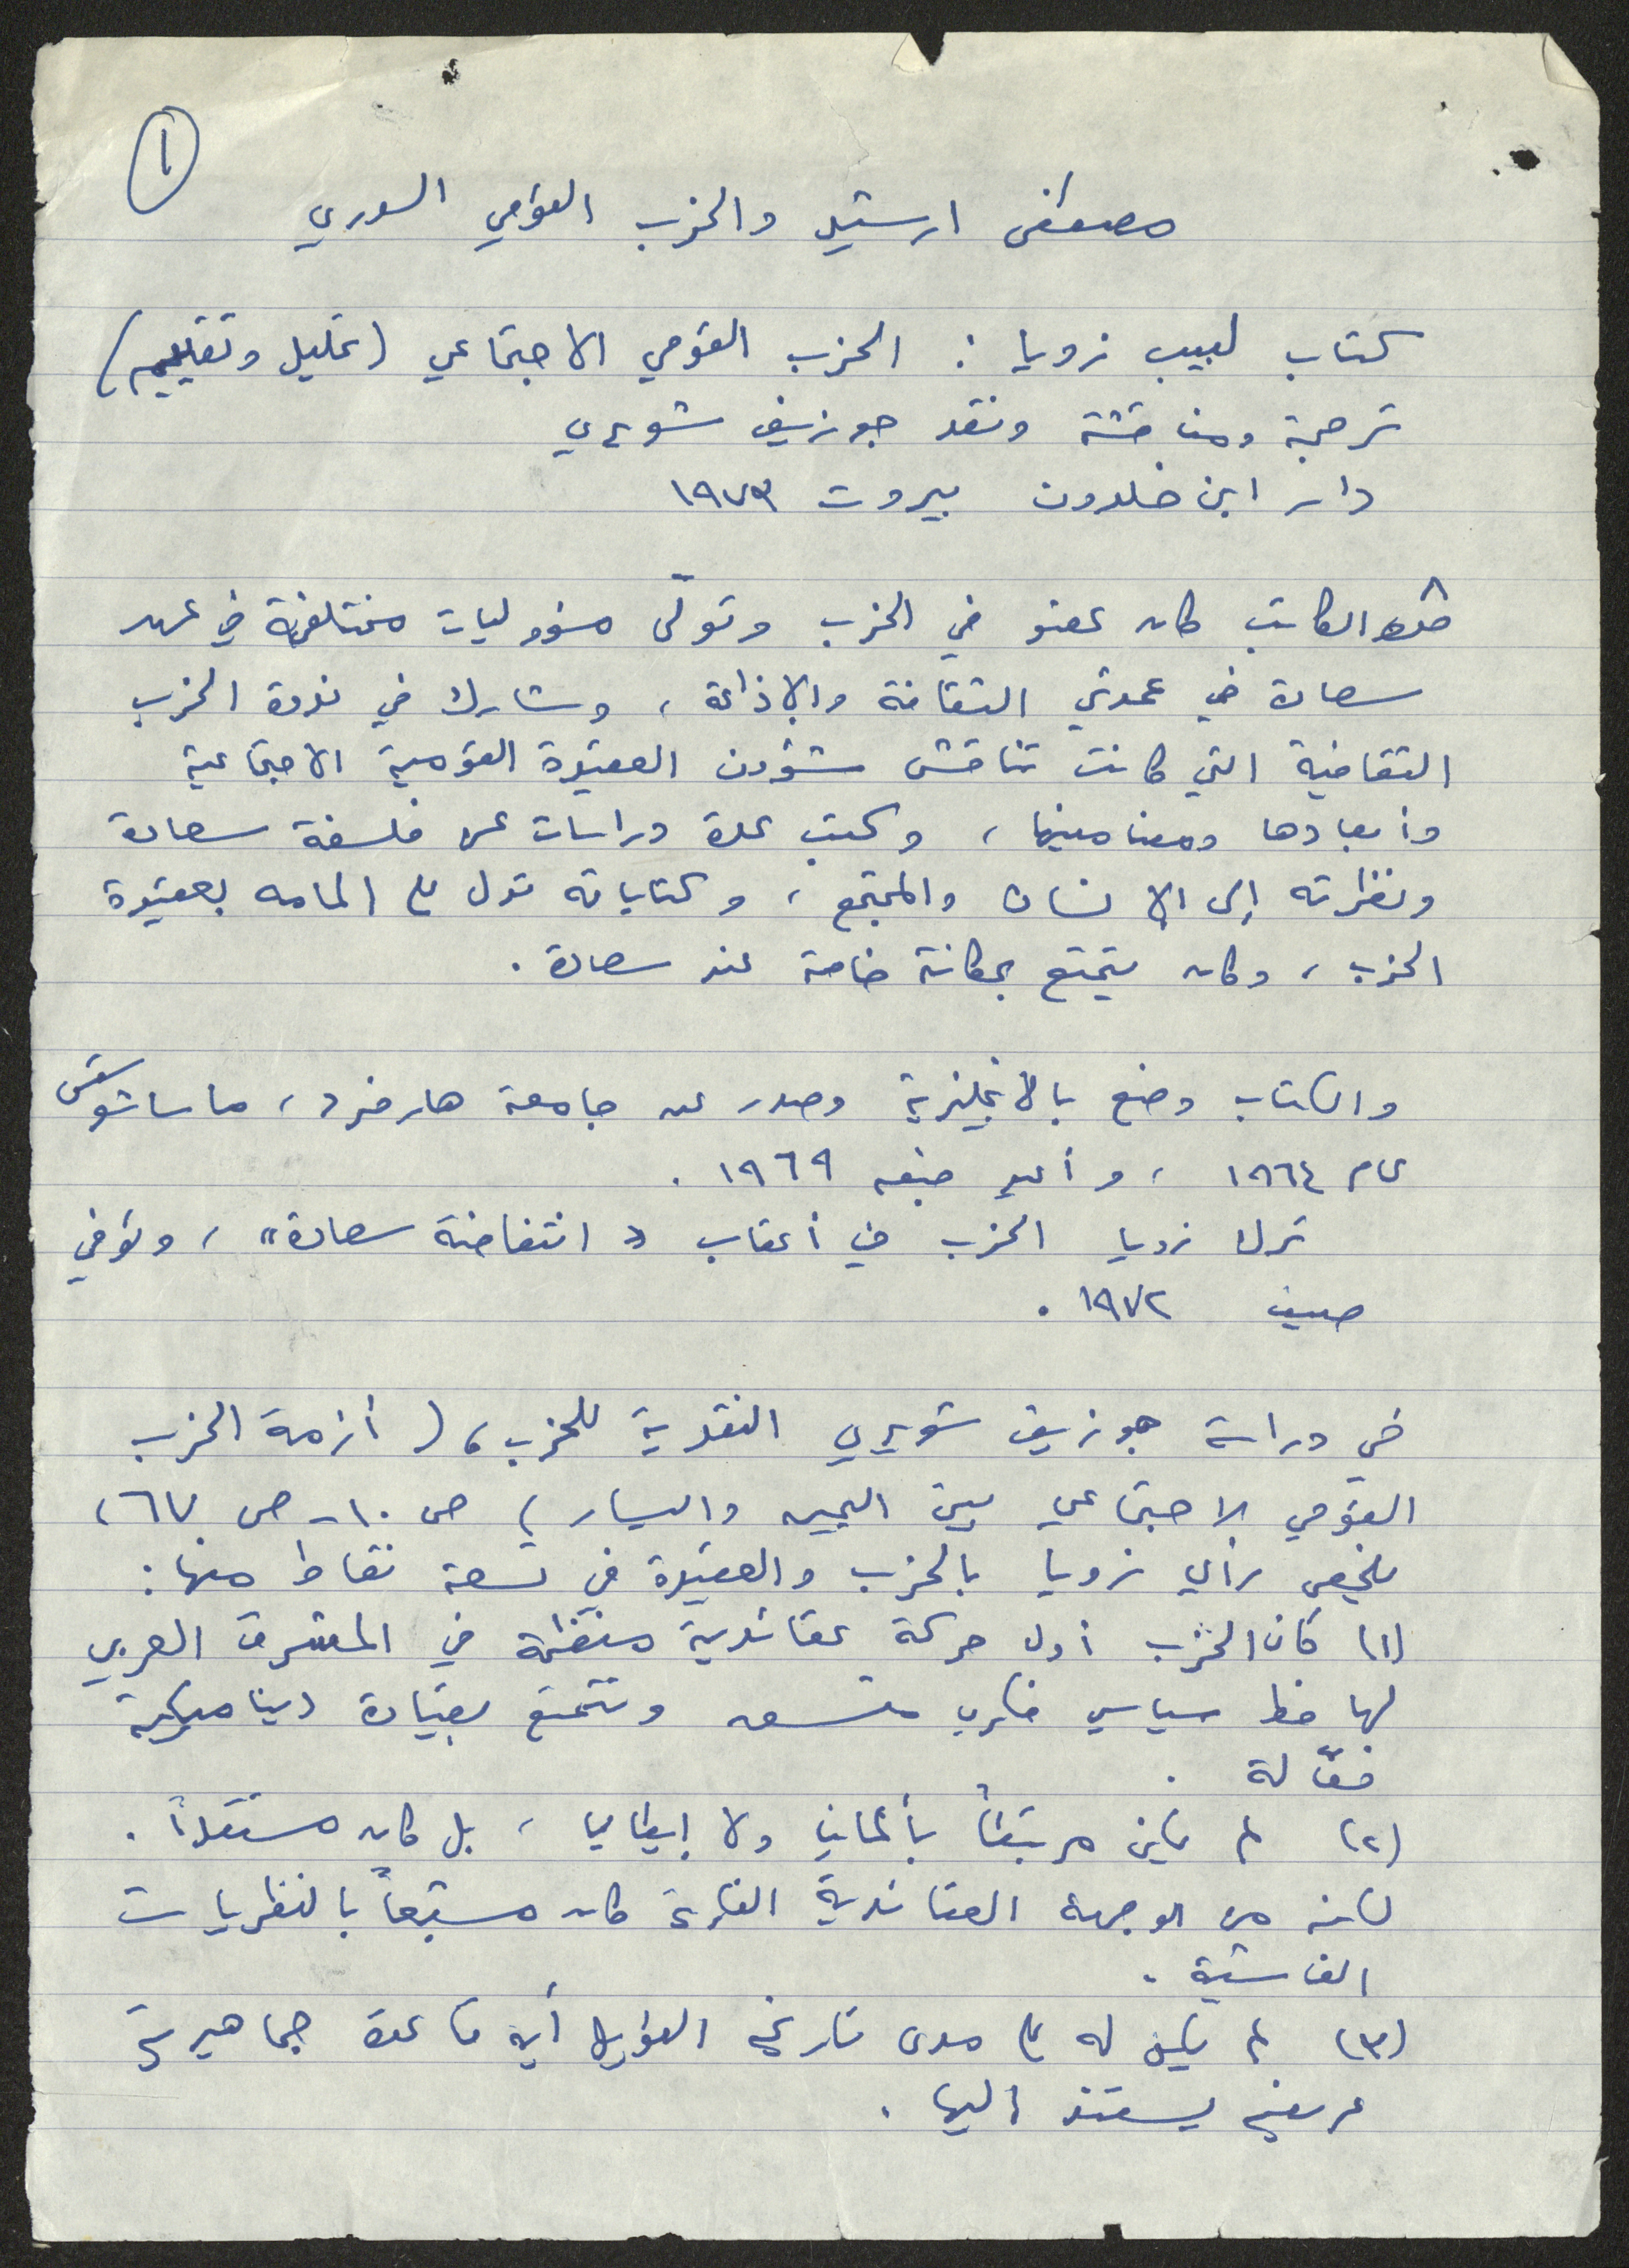 ١
مصطفى ارشيد والحزب القومي السوري
كتاب لبيب زويا : الحزب القومي الاجتماعي (تحليل وتقييم)
ترجمة ومناقشة ونقد جوزيف شويري
دار ابن خلدون بيروت ١٩٧٣
الكاتب كان عضو في الحزب وتولّى مسؤوليات مختلفة في عهد
سعادة في عمدتي الثقافة والإذاعة ، وشارك في ندوة الحزب
الثقافية التي كانت تناقش شؤون العقيدة القومية الاجتماعية
وأبعادها ومضامينها ، وكتب عدة دراسات عن فلسفة سعادة
ونظرته إلى الإنسان والمجتمع ، وكتاباته تدل على المامه بعقيدة
الحزب ، وكان يتمتع بمكانة خاصة عند سعادة .
والكتاب وضع بالانجليزية وصدر عن جامعة هارفرد ، ماساشوستس
عام ١٩٦٤ ، وأعيد طبعه ١٩٦٩ .
ترك زويا الحزب في أعقاب « انتفاضة سعادة » ، وتوفي
صيف ١٩٧٢ .
في دراسة جوزيف شويري النقدية للحزب ، ( أزمة الحزب
القومي الاجتماعي بين اليمين واليسار ) ص ١٠ - ص ٦٧ ،
يلخص رأي زويا بالحزب والعقيدة في تسعة نقاط منها :
(١) كان الحزب أول حركة عقائدية منظمة في المشرق العربي
لها خط سياسي فكري متسق وتتمتع بقيادة ديناميكية
فعّالة .
(٢) لم يكن مرتبطاً بألمانيا ولا إيطاليا ، بل كان مستقلاً .
لكنه من الوجهة العقائدية الفكرية كان مشبعاً بالنظريات
الفاشية .
(٣) لم يكن له على مدى تاريخه الطويل أية قاعدة جماهيرية
عريضة يستند اليها .